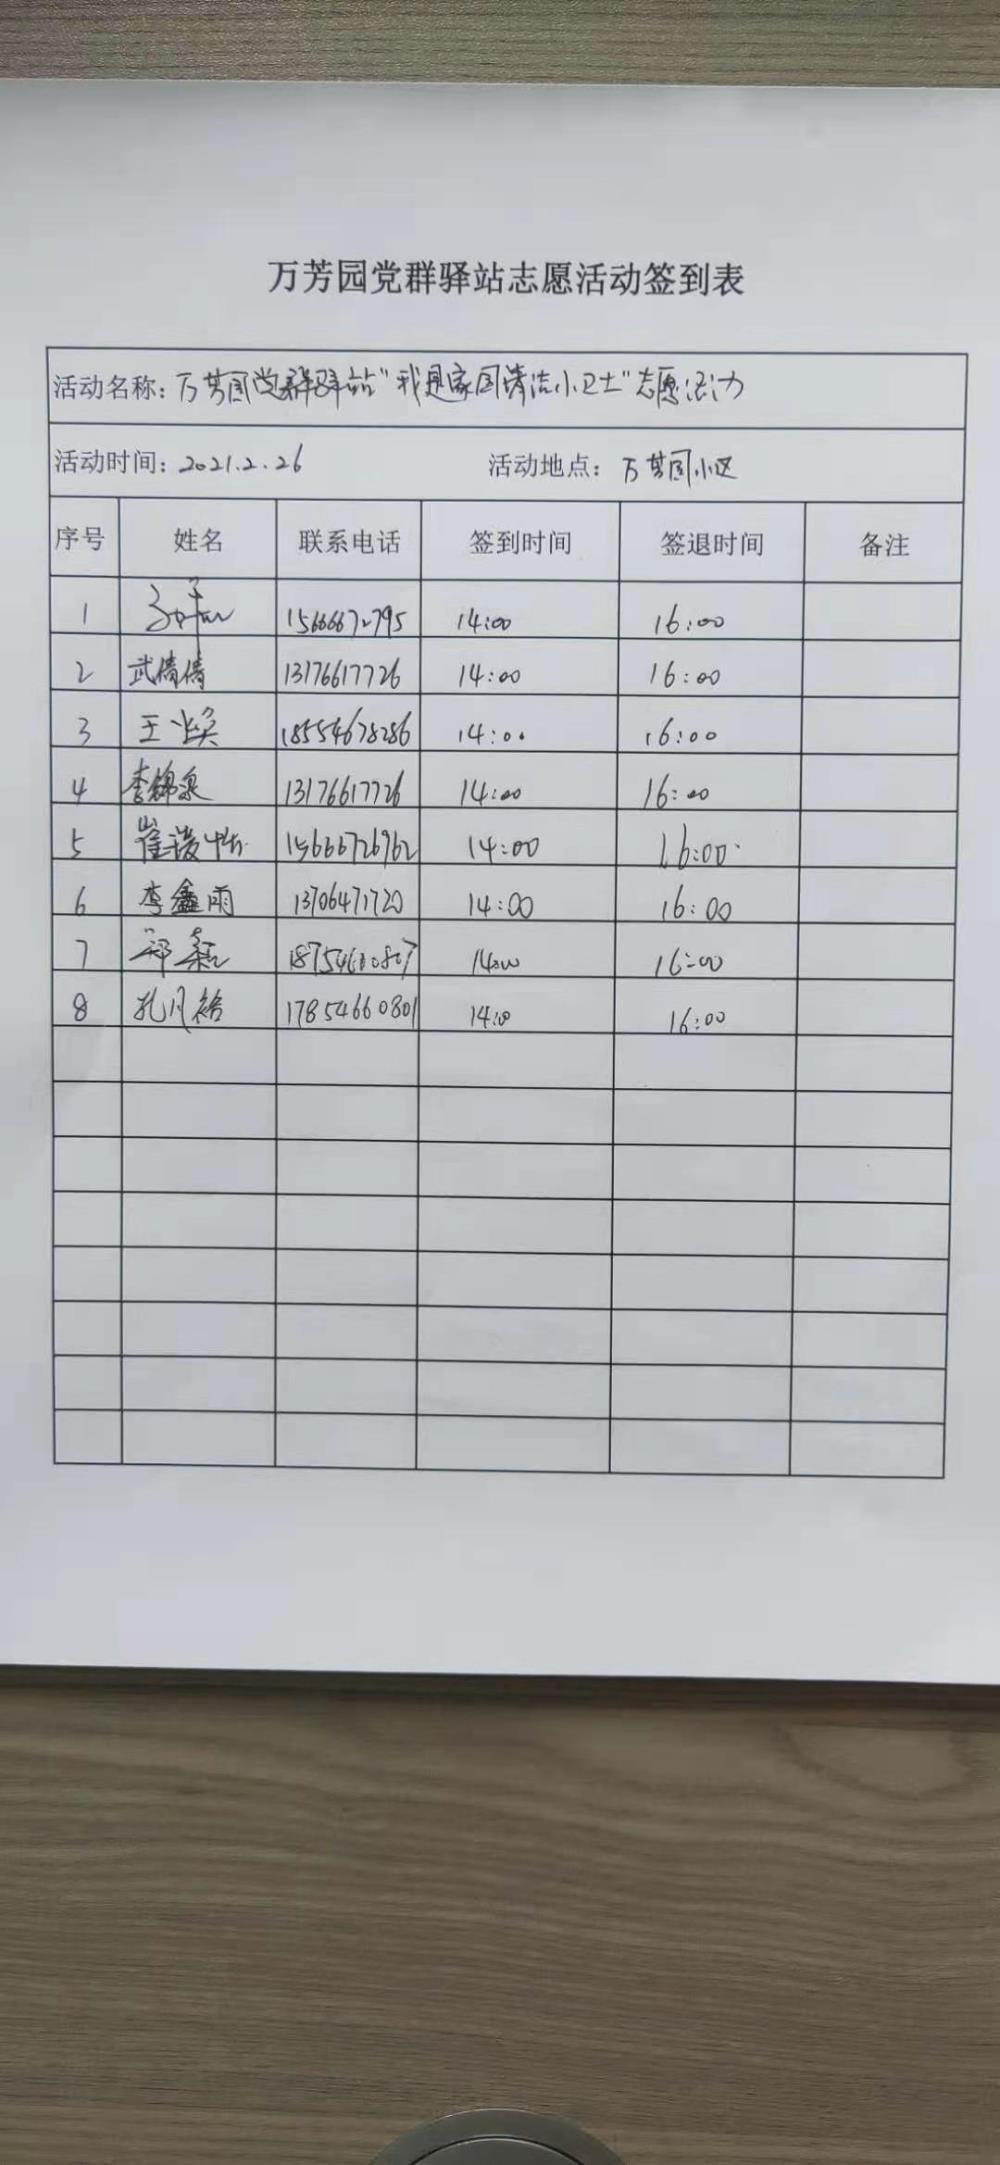 万芳园党群驿站志愿活动签到表
活动名称：万芳园党群驿站"我是家园清洁小卫士"志愿活动
活动时间：2021.2.26 活动地点：万芳园小区
序号 姓名 联系电话 签到时间 签退时间 备注
1 15666672795 14:00 16:00
2 武倩倩 13176617726 14:00 16:00
3 王 18554678286 14:00 16:00
4 李锦泉 13176617726 14:00 16:00
5 崔 15666726962 14:00 16:00
6 李鑫雨 13706471720 14:00 16:00
7 郑 18754600807 14:00 16:00
8 孔凡裕 17854660801 14:0 16:00